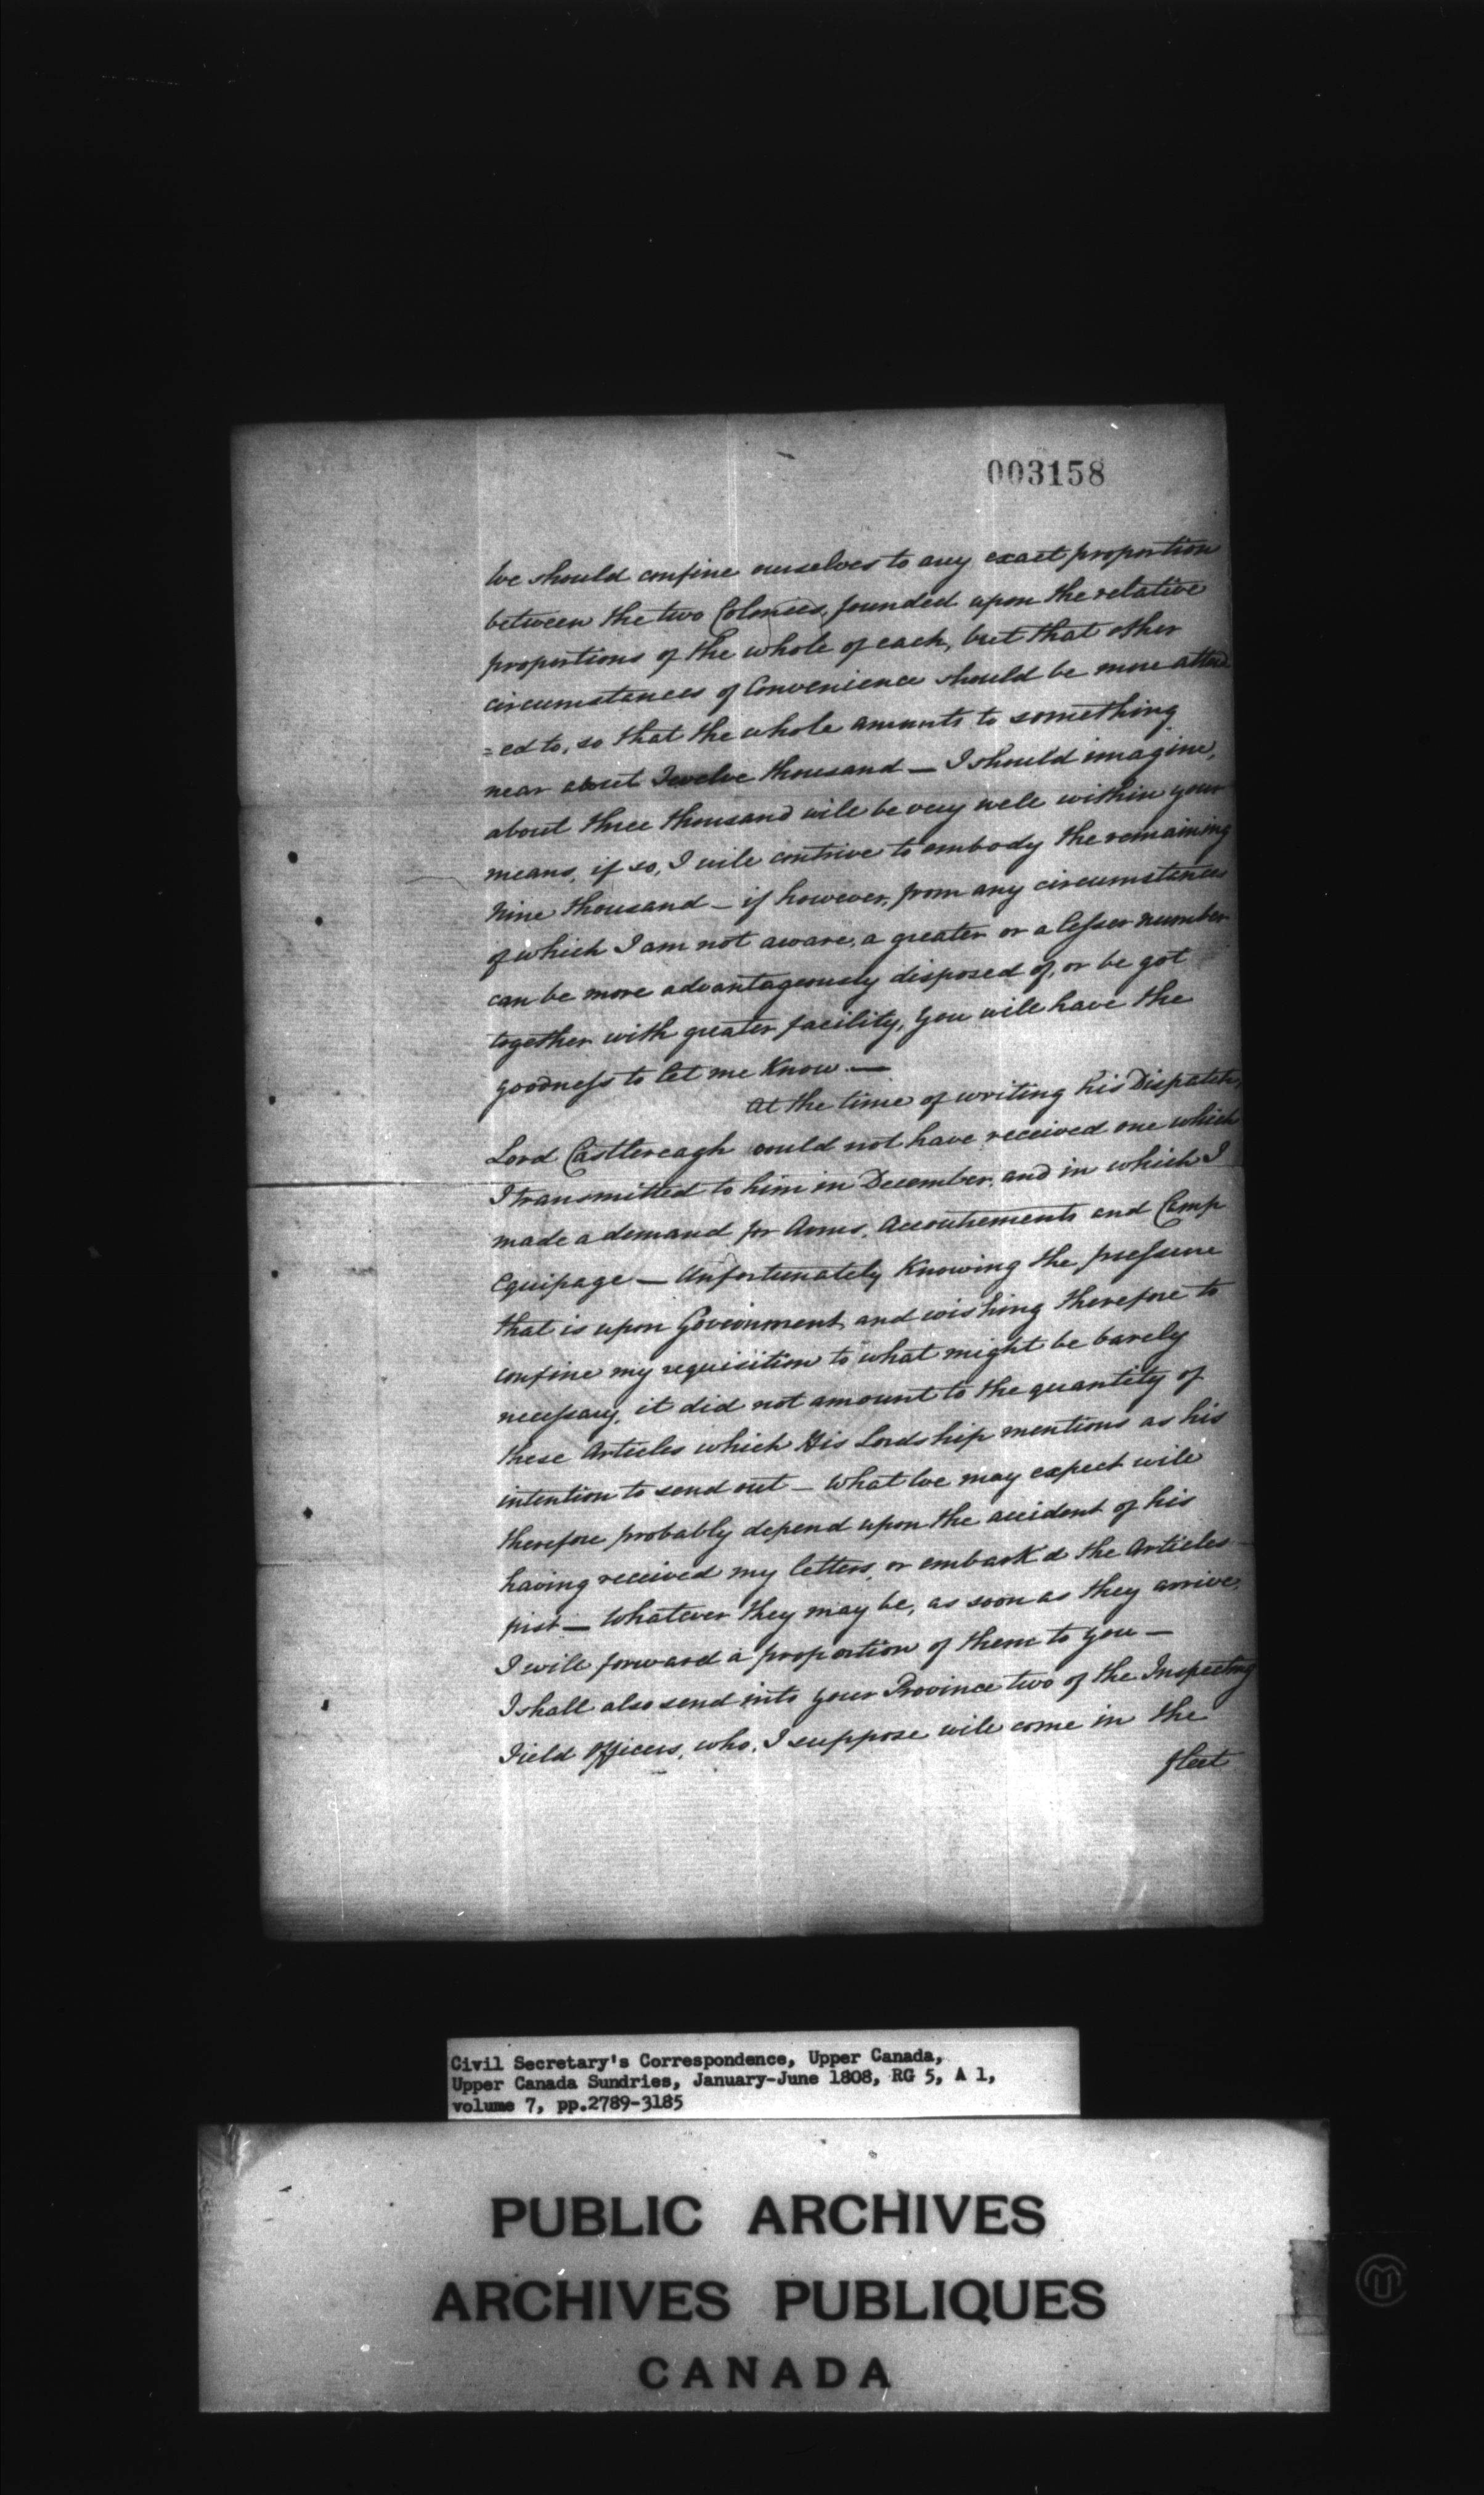 003158
We should confine ourselves to any exact proportion
between the two Colonies, founded upon the relative
proportions of the whole of each, but that other
circumstances of Convenience should be more attend
=ed to, so that the whole amounts to something
near about Twelve thousand — I should imagine,
about three thousand will be very well within your
means, if so, I will contrive to embody the remaining
Nine thousand — if however, from any circumstances
of which I am not aware, a greater or a lesser number
can be more advantageously disposed of, or be got
together with greater facility, you will have the
goodness to let me Know. —
At the time of writing his Dispatch,
Lord Castlereagh could not have received one which
I transmitted to him in December, and in which I
made a demand for Arms, Accoutrements and Camp
Equipage — Unfortunately Knowing the pressure
that is upon Government, and wishing therefore to
confine my requisition to what might be barely
necessary, it did not amount to the quantity of
these Articles which His Lordship mentions as his
intention to send out — What we may expect will
therefore probably depend upon the accident of his
having received my letters, or embark'd the Articles
first — Whatever they may be, as soon as they arrive,
I will forward a proportion of them to you —
I shall also send into your Province two of the Inspecting
Field Officers, who, I suppose will come in the
fleet
Civil Secretary's Correspondence, Upper Canada,
Upper Canada Sundries, January-June 1808, RG 5, A 1,
volume 7, pp.2789-3185
PUBLIC ARCHIVES
ARCHIVES PUBLIQUES
CANADA